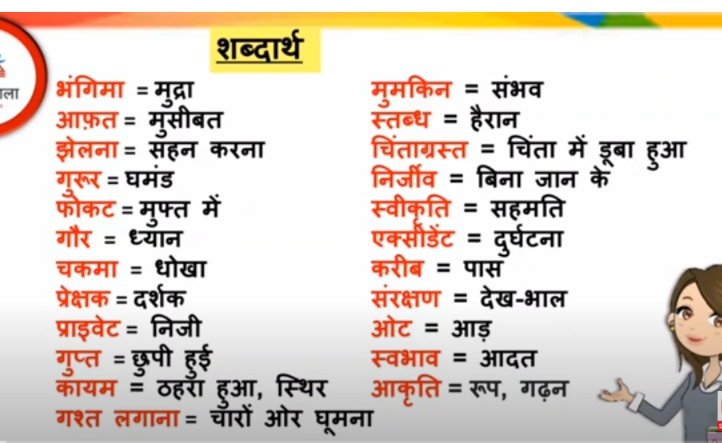 शब्दार्थ
भंगिमा = मुद्रा
आफ़त = मुसीबत
झेलना = सहन करना
गुरूर = घमंड
फोकट = मुफ्त में
गौर = ध्यान
चकमा = धोखा
प्रेक्षक = दर्शक
प्राइवेट = निजी
गुप्त = छुपी हुई
कायम = ठहरा हुआ, स्थिर
गश्त लगाना = चारों ओर घूमना
मुमकिन = संभव
स्तब्ध = हैरान
चिंताग्रस्त = चिंता में डूबा हुआ
निर्जीव = बिना जान के
स्वीकृति = सहमति
एक्सीडेंट = दुर्घटना
करीब = पास
संरक्षण = देख-भाल
ओट = आड़
स्वभाव = आदत
आकृति = रूप, गढ़न